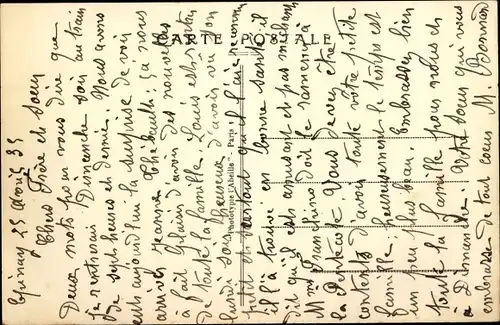 CARTE POSTALE
Phototypie l'Abeille - Paris
Epinay 25 avril 35
Chers Frère et Soeur
Deux mots pour vous dire que
je rentrerai Dimanche soir au train
de sept heures et demie. Nous avons
eut aujourd'hui la surprise de voir
arriver Jeanne Thébault. Ça nous
à fait plaisir d'avoir des nouvelles
de toute la famille. Louis est parti
lundi soir heureux d'avoir vu son
petit et surtout qu'il l'aie reconnu
il l'à trouvé en bonne santé il
dit qu'il est amusant et pas méchant
Mme Franchino doit le ramener à
la Pentecôte. Vous devez être
contents d'avoir toute votre petite
famille heureusement le temps est
un peu plus beau. Embrassez bien
toute la famille pour nous et
à Dimanche. Votre soeur qui vous
embrasse de tout coeur M. Bonnard